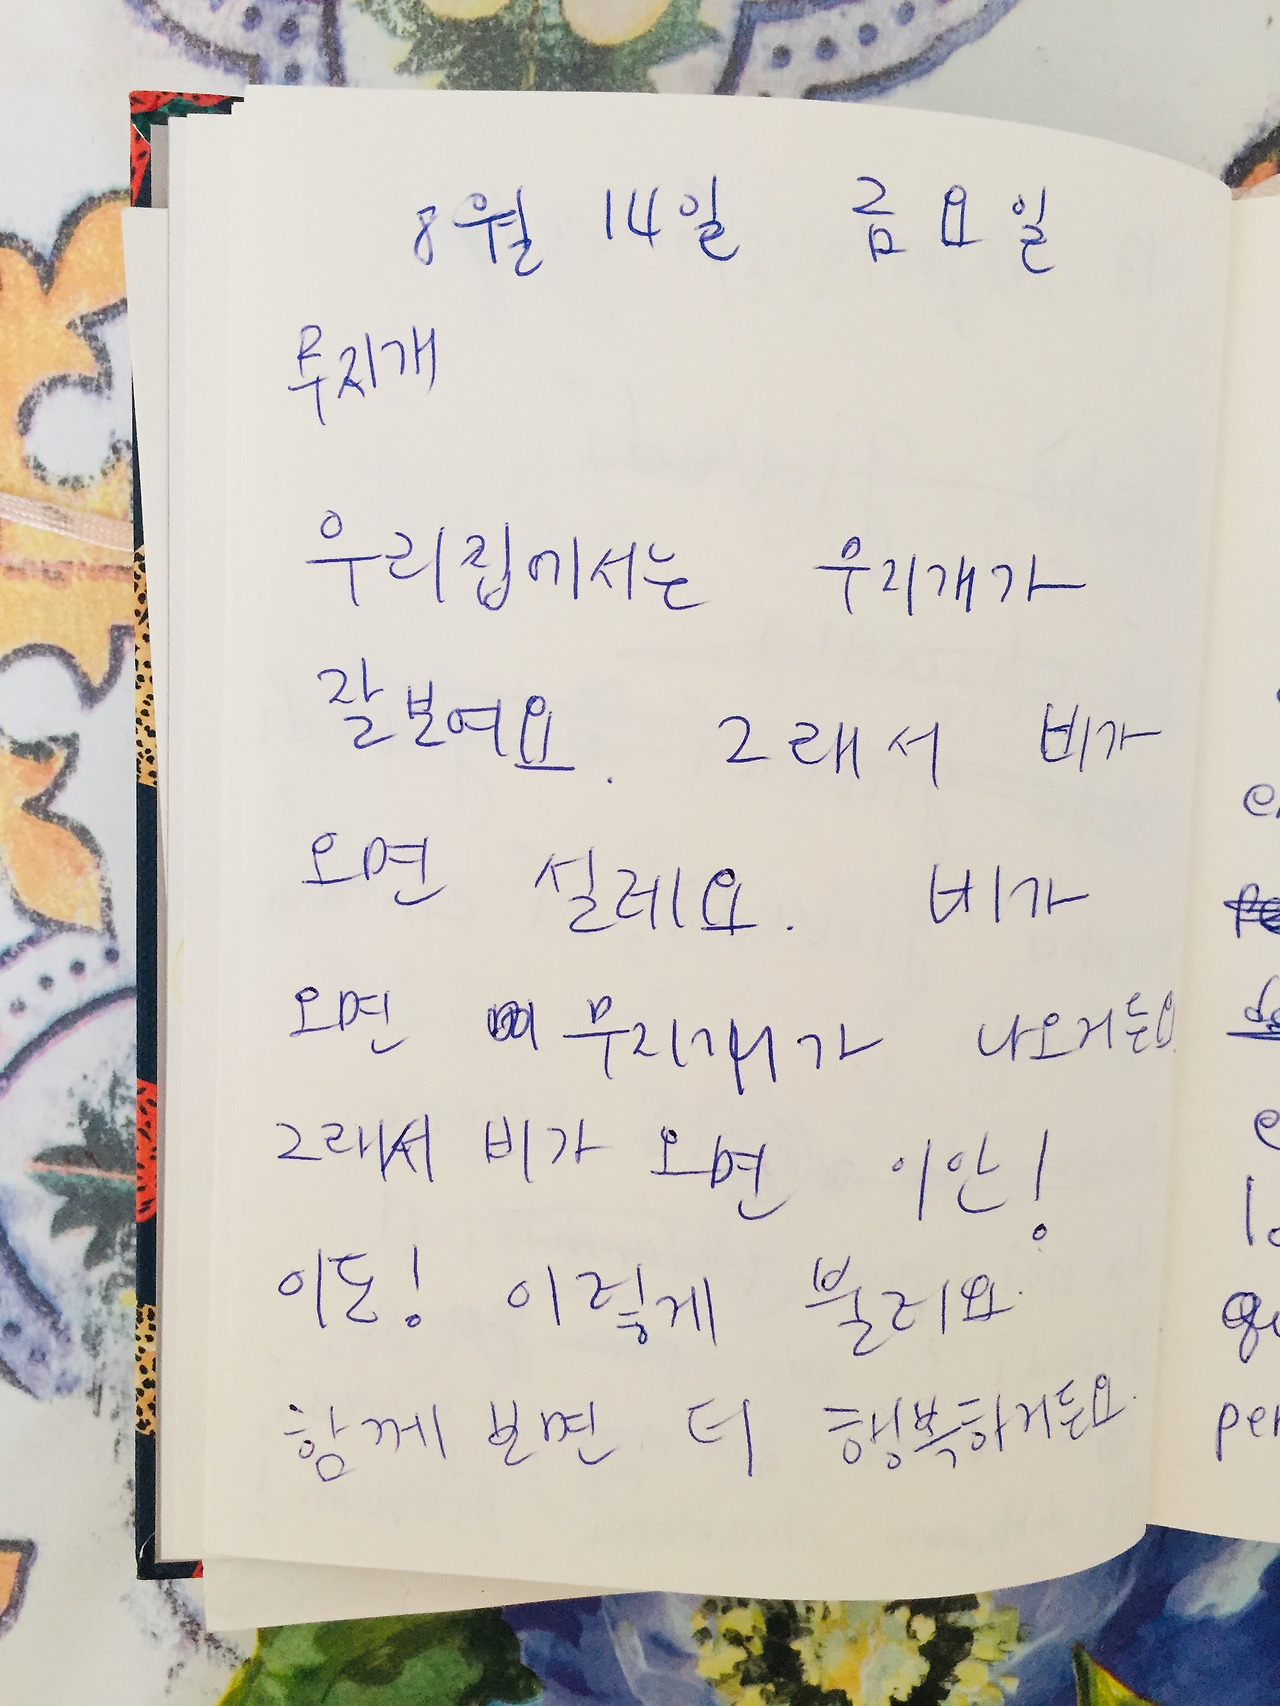 8월 14일 금요일
무지개
우리집에서는 우리개가
잘보여요. 그래서 비가
오면 설레요. 비가
오면 무지개가 나오거든요
그래서 비가 오면 이안!
이든! 이렇게 불러요
함께보면 더 행복하거든요